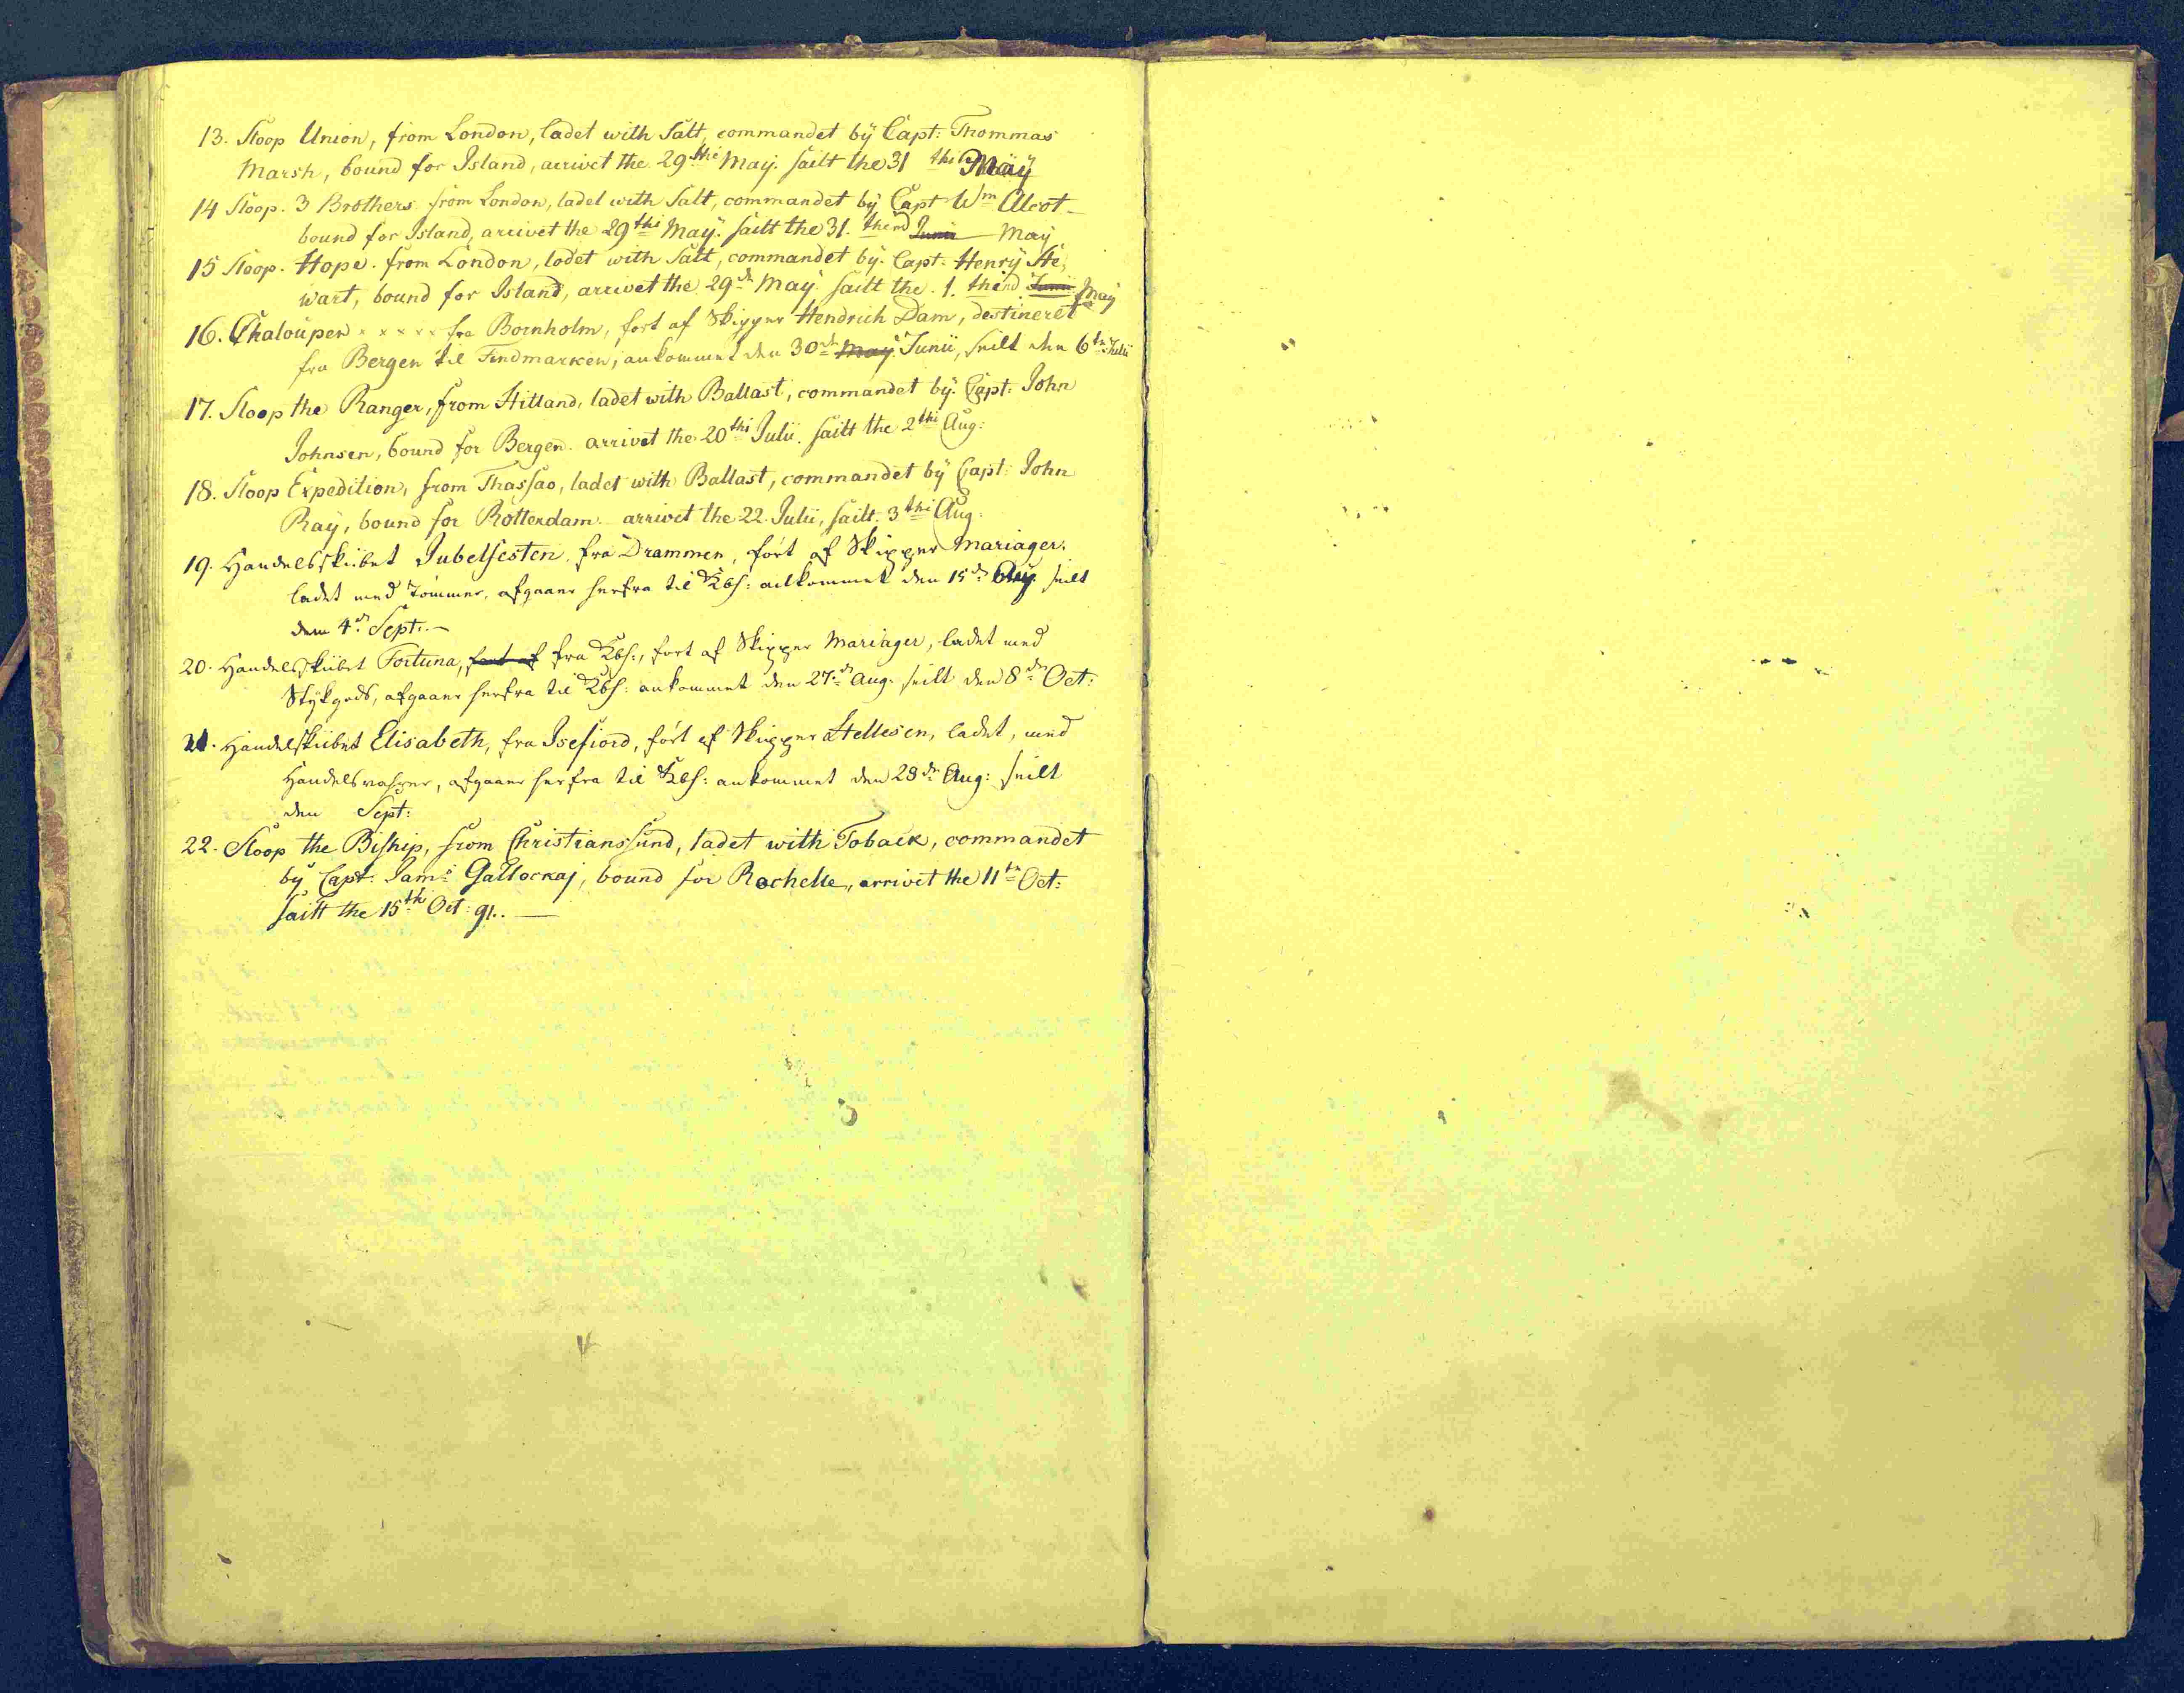 13. Sloop Union, from London, ladet with Salt, commandet bÿ Capt: Thommas
Marsh, bound for Island, arrivet the 29thi Maÿ. sailt the 31 thi Maÿ
14 Sloop. 3 Brothers from London, ladet with Salt, commandet bÿ Capt Wm Alcot
bound for Island, arrivet the 29thi Maÿ. sailt the 31. thend Junii Maÿ
15 Sloop. Hope. from London, ladet with Salt, commandet bÿ. Capt: Henrÿ Ste,
wart, bound for Island, arrivet the 29de Maÿ. sailt the. 1. thend Junii Maÿ
16. Chaloupen × × × × fra Bornholm, fört af Skipper Hendrich Dam, destineret
fra Bergen til Findmarken, ankommet den 30de Maÿ Junii, seilt den 6te Julii
17. Sloop the Ranger, from Hitland, ladet with Ballast, commandet bÿ. Capt: John
Johnsen, bound for Bergen. arrivet the 20thi Julii. sailt the 2thi Aug:
18. Sloop Expedition, from Thassao, ladet with Ballast, commandet bÿ Capt: John
Raÿ, bound for Rotterdam. arrivet the 22. Julii, sailt. 3thi Aug:
19. Handelsskibet Jubelfesten, fra Drammen, fört af Skipper Mariager.
ladet med Tömmer, afgaaer herfra til Kbh: ankommet den 15de Aug. seilt
den 4de Sept:
20. Handelsskibet Fortuna, fört af fra Kbh:, fört af Skipper Mariager, ladet med
Stÿkgods, afgaaer herfra til Kbh: ankommet den 27de Aug. seilt den 8de Oct:
21. Handelskibet Elisabeth, fra Isefiord, fört af Skipper Stellesen, ladet, med
Handelsvahrer, afgaaer herfra til Kbh: ankommet den 28de Aug: seilt
den Sept:
22. Sloop the Biship, from Christianssund, ladet with Toback, commandet
bÿ Capt: Jams Gallockaj, bound for Rochelle, arrivet the 11te Oct:
sailt the 15th Oct: 91.